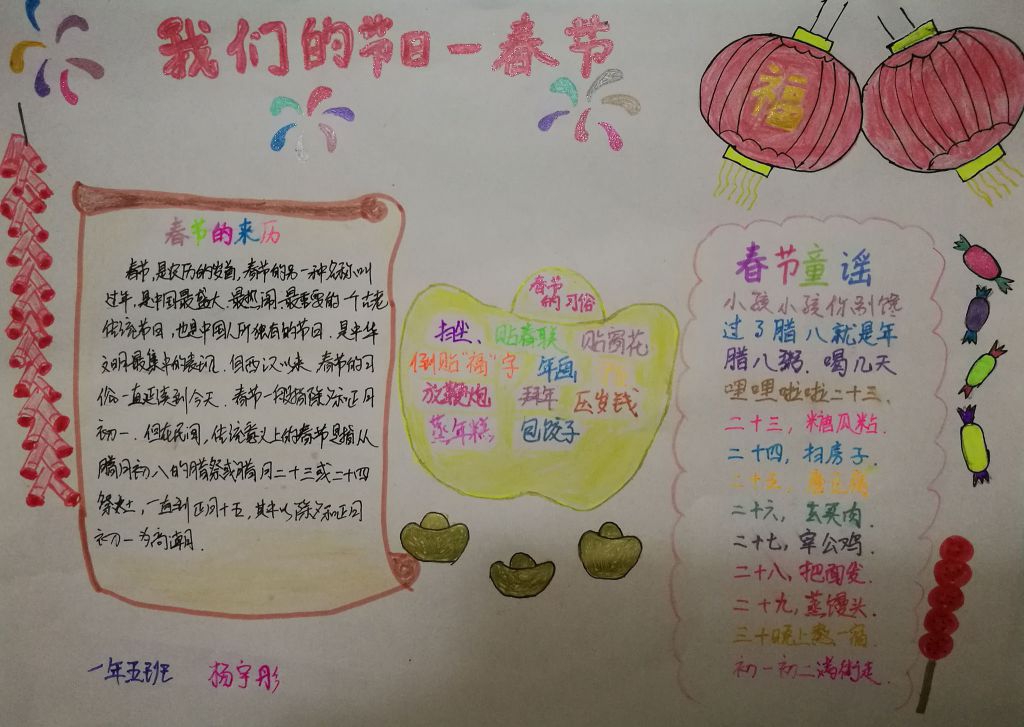 我们的节日一春节
福
春节的来历
春节,是农历的岁首,春节的另一种名称叫
过年,是中国最盛大、最热闹、最重要的一个古老
传统节日,也是中国人所独有的节日。是中华
文明最集中的表现。但西汉以来,春节的习
俗一直延续到今天。春节一般指除夕和正月
初一。但在民间,传统意义上的春节是指从
腊月初八的腊祭或腊月二十三或二十四
祭灶,一直到正月十五,其中以除夕和正月
初一为高潮。
春节
的习俗
扫尘、贴春联 贴窗花
倒贴“福”字 年画
放鞭炮 拜年 压岁钱
蒸年糕 包饺子
春节童谣
小孩小孩你别馋
过了腊八就是年
腊八粥、喝几天
哩哩啦啦二十三。
二十三,糖瓜粘.
二十四,扫房子.
二十五,磨豆腐
二十六,去买肉.
二十七,宰公鸡.
二十八,把面发.
二十九,蒸馒头.
三十晚上熬一宿
初一初二满街走.
一年五班 杨宇彤